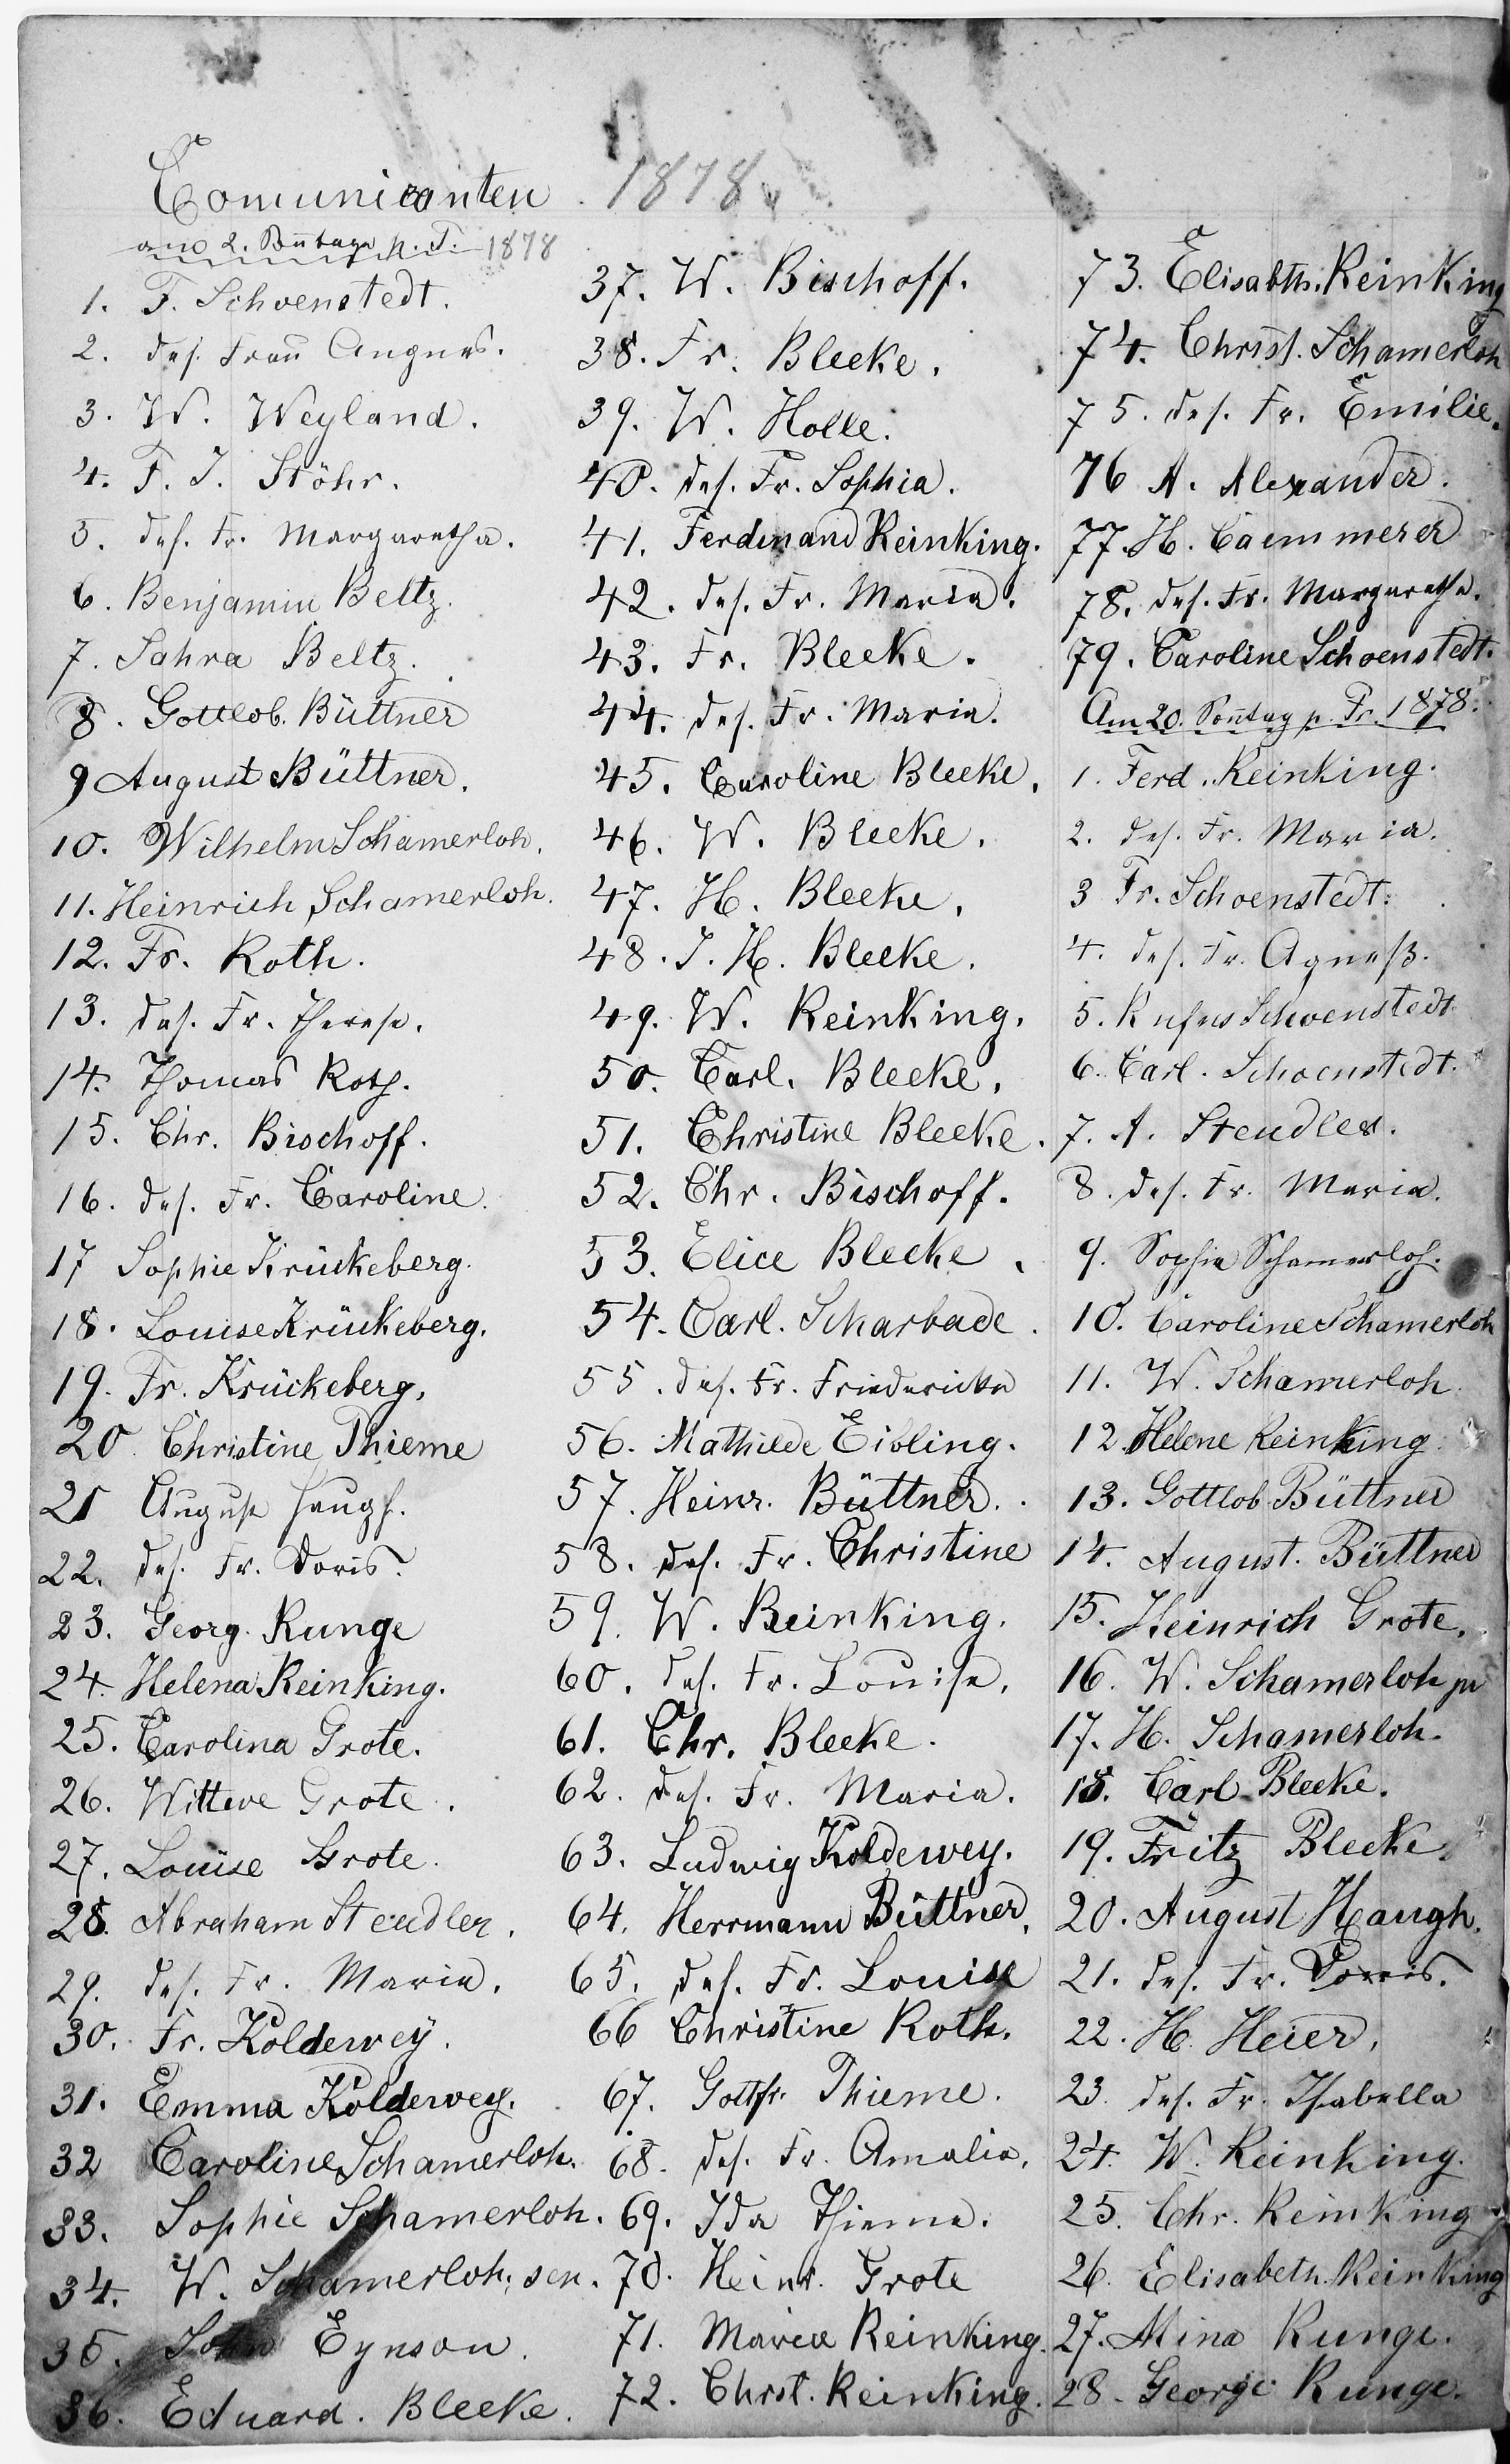 Comunicanten 1878
am 2. Sontage p. T. 1878
1. F. Schoenstedt.
2. des. Frau Angnes.
3. W. Weyland.
4. F. J. Stöhr.
5. des. Fr. Margaretha.
6. Benjamin Beltz.
7. Sahra Beltz.
8. Gottlob. Büttner
9 August Büttner.
10. Wilhelm Schamerloh.
11. Heinrich Schamerloh.
12. Fr. Roth.
13. des. Fr. Therese.
14. Thomas Roth.
15. Chr. Bischoff.
16. des. Fr. Caroline.
17 Sophie Krückeberg.
18. Louise Krückeberg.
19. Fr. Krückeberg.
20. Christine Thieme
21 August Haugh.
22. des. Fr. Doris.
23. Georg. Runge
24. Helena Reinking.
25. Carolina Grote.
26. Wittwe Grote.
27. Louise Grote.
28. Abraham Steudler.
29. des. Fr. Maria.
30. Fr. Koldewey.
31. Emma Koldewey.
32 Caroline Schamerloh.
33. Sophie Schamerloh.
34. W. Schamerloh, sen.
35. John Eynson.
36. Eduard. Bleeke.
37. W. Bischoff.
38. Fr. Bleeke.
39. W. Holle.
40. des. Fr. Sophia.
41. Ferdinand Reinking.
42. des. Fr. Maria.
43. Fr. Bleeke.
44. des. Fr. Maria.
45. Caroline Bleeke.
46. W. Bleeke.
47. H. Bleeke.
48. J. H. Bleeke.
49. W. Reinking.
50. Carl. Bleeke.
51. Christine Bleeke.
52. Chr. Bischoff.
53. Elice Bleeke.
54. Carl. Scharbade.
55. des. Fr. Friedericka
56. Mathilde Eibling.
57. Heinr. Büttner.
58. des. Fr. Christine
59. W. Reinking.
60. des. Fr. Louise.
61. Chr. Bleeke.
62. des. Fr. Maria.
63. Ludwig Koldewey.
64. Herrmann Büttner.
65. des. Fr. Louise
66 Christine Roth.
67. Gottfr. Thieme.
68. des. Fr. Amalia.
69. Ida Thieme.
70. Heinr. Grote
71. Maria Reinking.
72. Chrst. Reinking.
73. Elisabth. Reinking
74. Christ. Schamerloh
75. des. Fr. Emilie.
76 A. Alexander.
77. H. Caemmerer
78. des. Fr. Margaretha.
79. Caroline Schoenstedt.
Am 20. Sontag p. Tr. 1878.
1. Ferd. Reinking.
2. des. Fr. Maria.
3 Fr. Schoenstedt.
4. des. Fr. Agneß.
5. Rufus Schoenstedt
6. Carl. Schoenstedt.
7. A. Steudler.
8. des. Fr. Maria.
9. Sophia Schamerloh.
10. Caroline Schamerloh
11. W. Schamerloh.
12. Helene Reinking.
13. Gottlob Büttner
14. August. Büttner
15. Heinrich Grote.
16. W. Schamerloh jn
17. H. Schamerloh.
18. Carl Bleeke.
19. Fritz Bleeke.
20. August Haugh.
21. des. Fr. Doris.
22. H. Heier.
23. des. Fr. Isabella
24. W. Reinking.
25. Chr. Reinking
26. Elisabeth. Reinking
27. Mina Runge.
28. George Runge.